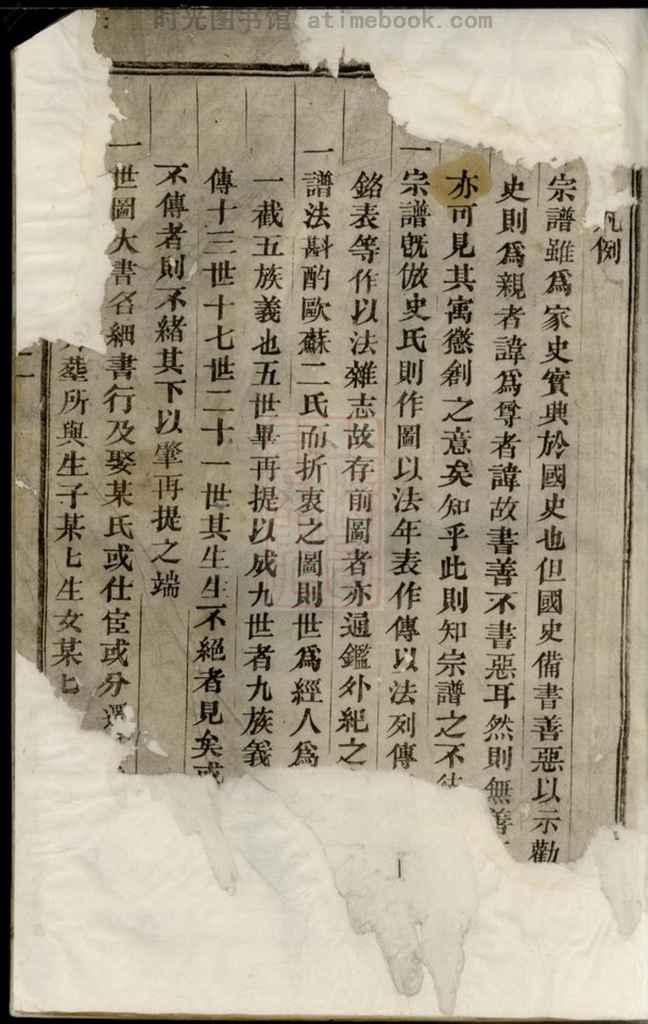 时光图书馆 atimebook.com
凡例
宗譜雖爲家史實典於國史也但國史備書善惡以示勸
史則爲親者諱爲尊者諱故書善不書惡耳然則無善
亦可見其寓懲創之意矣知乎此則知宗譜之不
一宗譜旣倣史氏則作圖以法年表作傳以法列傳
銘表等作以法雜志故存前圖者亦通鑑外紀之
一譜法斟酌歐蘇二氏而折衷之圖則世爲經人爲
一截五族義也五世畢再提以成九世者九族義
傳十三世十七世二十一世其生生不絕者見矣或
不傳者則不緒其下以肇再提之端
一世圖大書名細書行及娶某氏或仕宦或分遷
墓所與生子某七生女某七
二